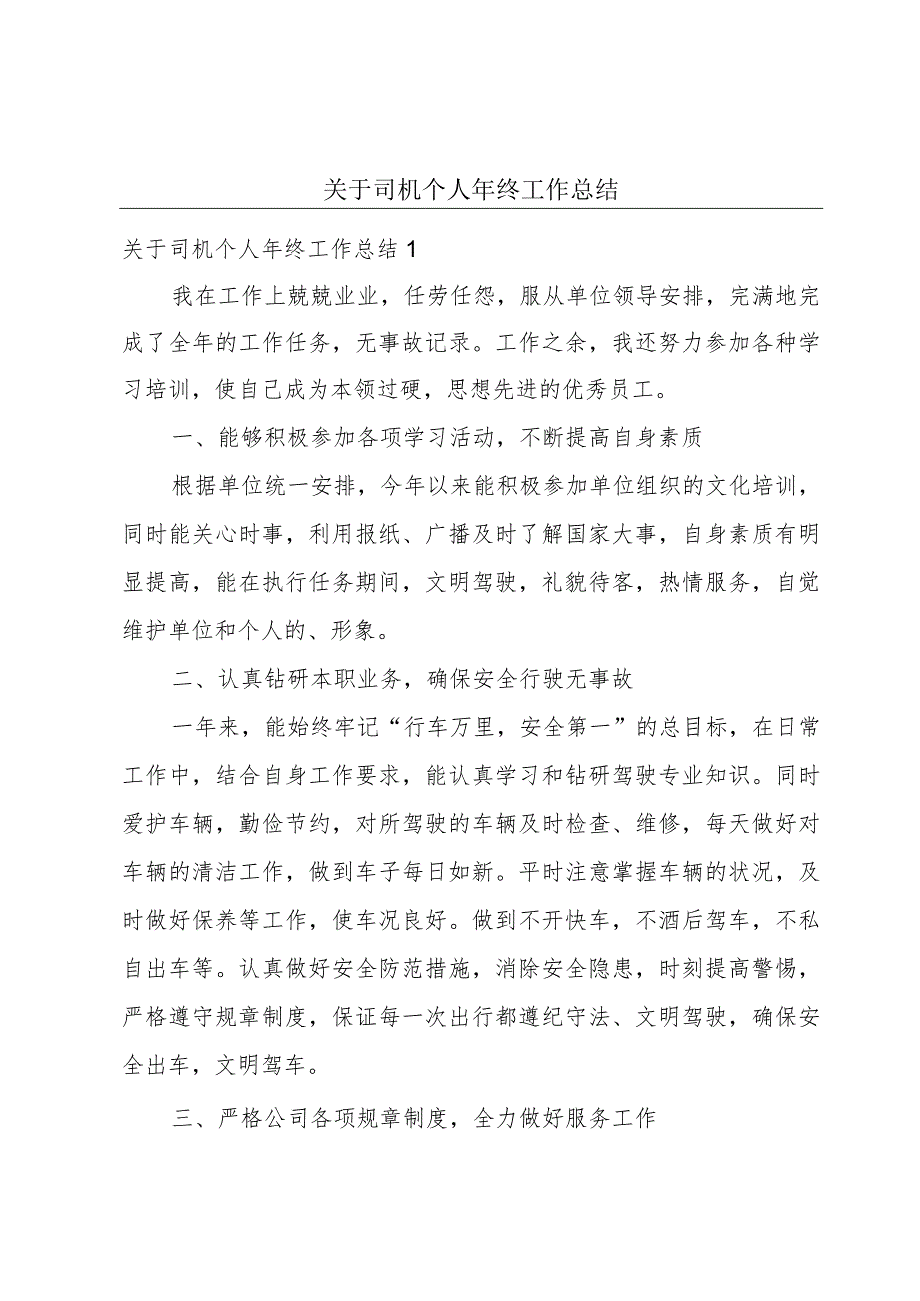 关于司机个人年终工作总结
关于司机个人年终工作总结1
我在工作上兢兢业业，任劳任怨，服从单位领导安排，完满地完
成了全年的工作任务，无事故记录。工作之余，我还努力参加各种学
习培训，使自己成为本领过硬，思想先进的优秀员工。
一、能够积极参加各项学习活动，不断提高自身素质
根据单位统一安排，今年以来能积极参加单位组织的文化培训，
同时能关心时事，利用报纸、广播及时了解国家大事，自身素质有明
显提高，能在执行任务期间，文明驾驶，礼貌待客，热情服务，自觉
维护单位和个人的、形象。
二、认真钻研本职业务，确保安全行驶无事故
一年来，能始终牢记“行车万里，安全第一”的总目标，在日常
工作中，结合自身工作要求，能认真学习和钻研驾驶专业知识。同时
爱护车辆，勤俭节约，对所驾驶的车辆及时检查、维修，每天做好对
车辆的清洁工作，做到车子每日如新。平时注意掌握车辆的状况，及
时做好保养等工作，使车况良好。做到不开快车，不酒后驾车，不私
自出车等。认真做好安全防范措施，消除安全隐患，时刻提高警惕，
严格遵守规章制度，保证每一次出行都遵纪守法、文明驾驶，确保安
全出车，文明驾车。
三、严格公司各项规章制度，全力做好服务工作